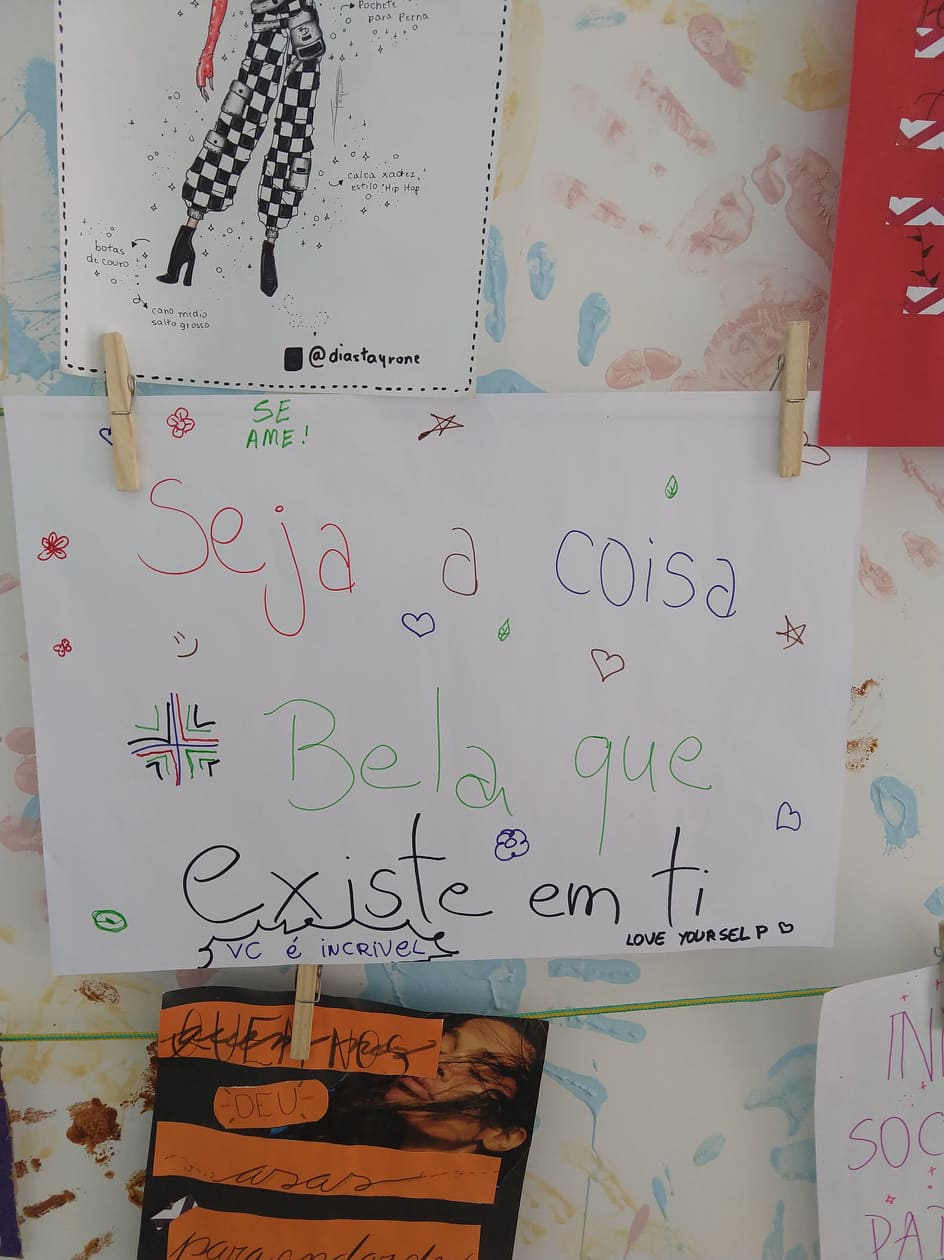 Pochete
para Perna
calca xadrez,
estilo Hip Hop
botas
de couro
cano médio
salto grosso
@diastayrone
SE
AME!
Seja a coisa
Bela que
existe em ti
VC é INCRIVEL
LOVE YOURSELF
QUEM NOS
DEU
asas
para andar de
IN
SOC
PAR